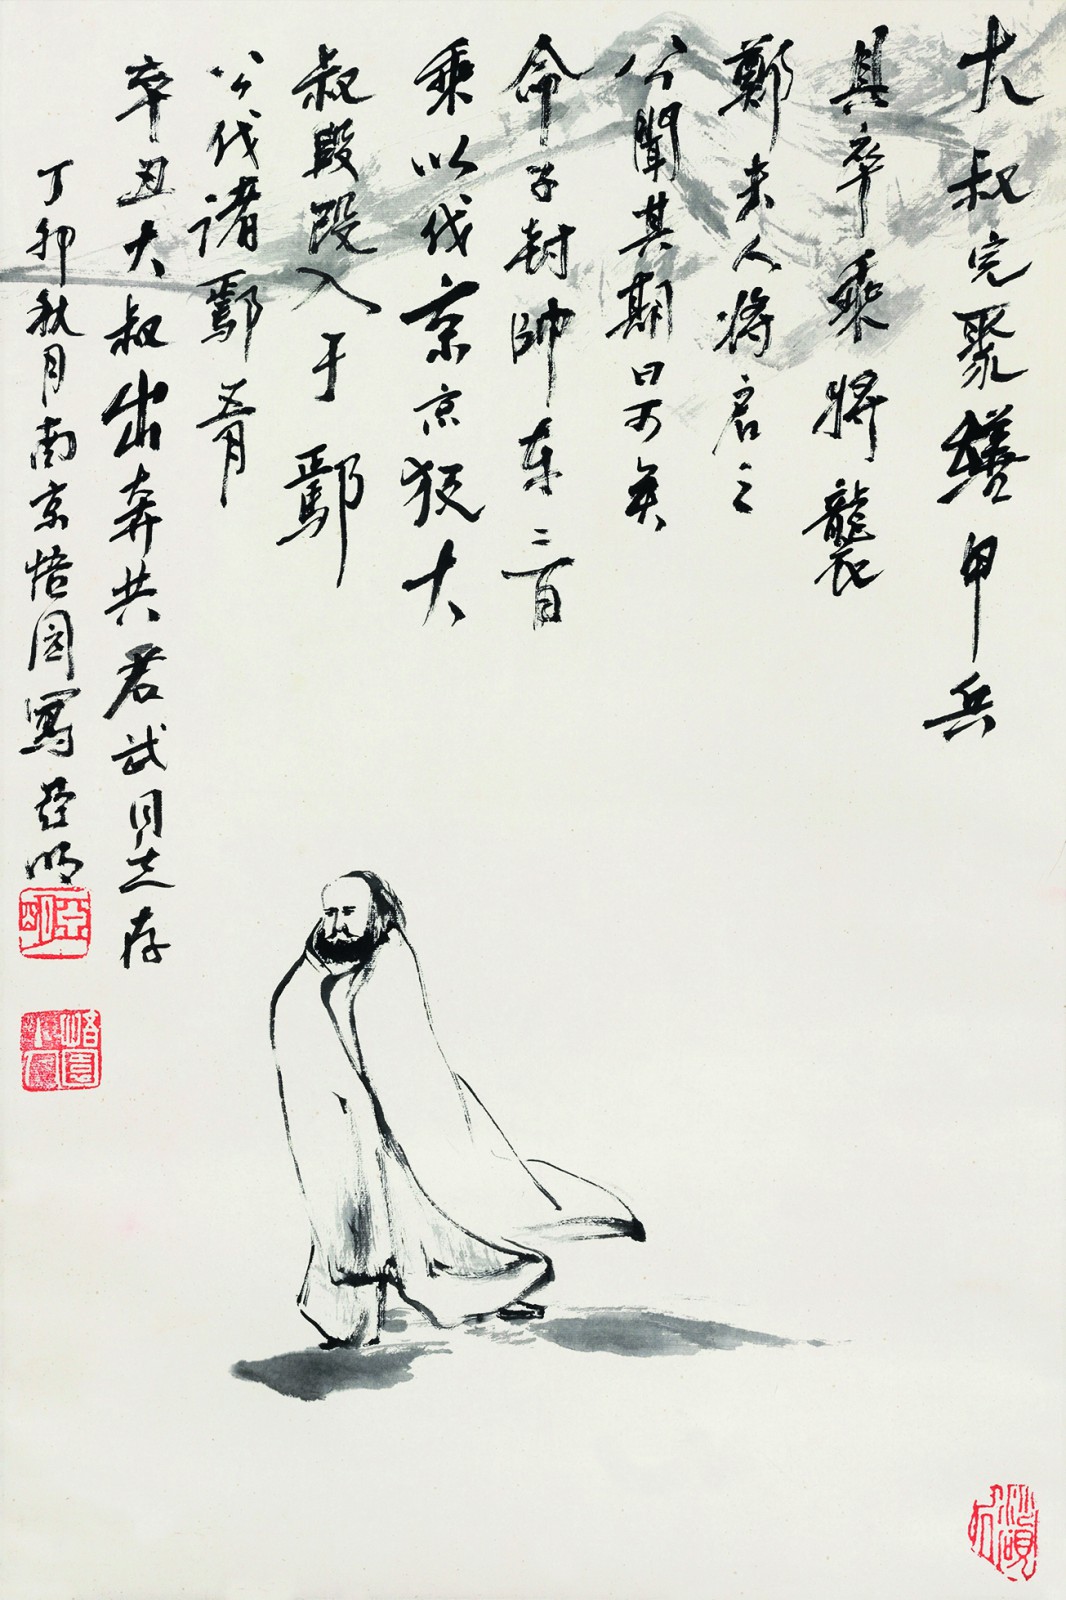 大叔完聚繕甲兵
具卒乘將襲
鄭夫人將启之
公聞其期曰可矣
命子封帥车二百
乘以伐京京叛大
叔段段入于鄢
公伐諸鄢五月
辛丑大叔出奔共君武同志存
丁卯秋月南京悟園寫亞明
亞明